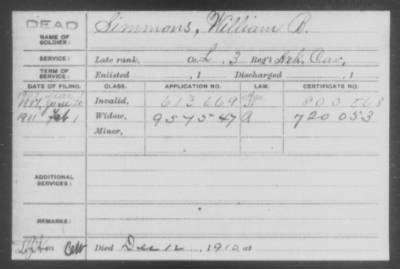 DEAD
NAME OF SOLDIER: Simmons, William B.
SERVICE: Late rank, Co. L, 3 Reg't Ark. Cav.
TERM OF SERVICE: Enlisted , 1 Discharged , 1
DATE OF FILING. CLASS. APPLICATION NO. LAW. CERTIFICATE NO.
Invalid, 613 669
1911 Feb 1 Widow, 957547 A 720 053
Minor,
ADDITIONAL SERVICES:
REMARKS:
Died Dec 12, 1910, at